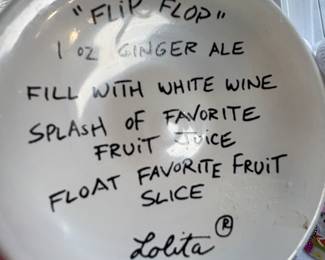 "FLIP FLOP"
1 OZ GINGER ALE
FILL WITH WHITE WINE
SPLASH OF FAVORITE
FRUIT JUICE
FLOAT FAVORITE FRUIT
SLICE
Lolita ®